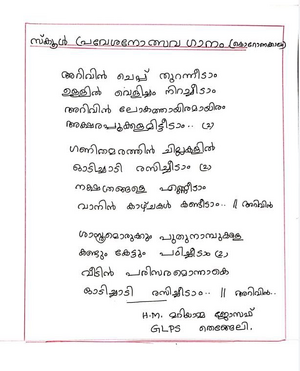 സ്കൂൾ പ്രവേശനോത്സവ ഗാനം (കൊറോണക്കാല)
അറിവിൻ ചെപ്പ് തുറന്നീടാം
ഉള്ളിൽ വെളിച്ചം നിറച്ചീടാം
അറിവിൻ ലോകത്തായിരമായിരം
അക്ഷരപൂക്കളുമിട്ടീടാം.. (2)
ഗണിതമരത്തിൻ ചില്ലകളിൽ
ഓടിച്ചാടി രസിച്ചീടാം (2)
നക്ഷത്രങ്ങളെ എണ്ണീടാം
വാനിൻ കാഴ്ചകൾ കണ്ടീടാം.. || അറിവിൻ
ശാസ്ത്രമൊരുക്കും പുതുനാമ്പുകളെ
കണ്ടും കേട്ടും പഠിച്ചീടാം (2)
വീടിൻ പരിസരമൊന്നാകെ
ഓടിച്ചാടി രസിച്ചീടാം.. || അറിവിൻ..
H.M. മറിയാമ്മ ജോസഫ്
GLPS തെങ്ങേലി.